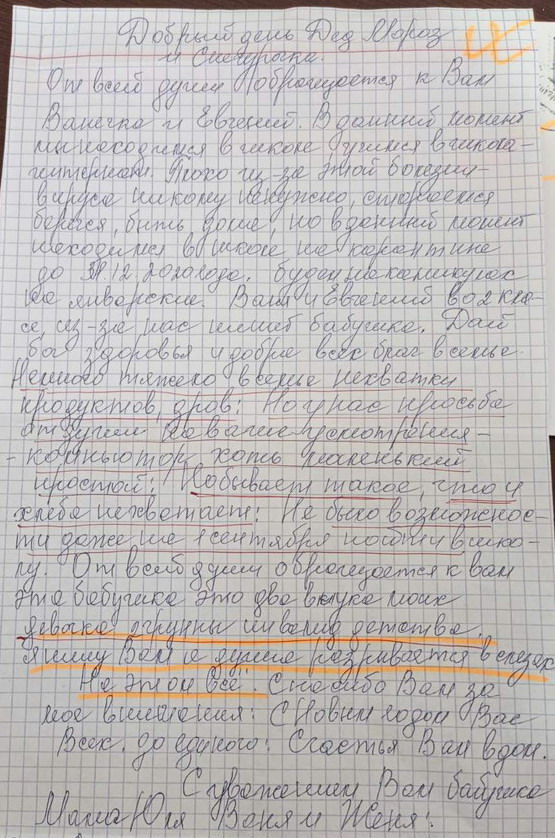 Добрый день Дед Мороз
и Снегурочка.
От всей души оброщается к Вам
Ванечка и Евгений. В данний момент
мы находимся в школе учимся в школа-
интернат. Плохо из-за этой болезни-
вируса никому ненужно, стораемся
беречся, быть дома, но в данний момент
находимся в школе на карантине
до 12.2020 года. будем на каникулах
на январские. Ваня и Евгений во 2 кла-
се, из-за нас пишит бабушка. Дай
бог здоровья и добра всех благ в семье.
Немного тяжело в семье нехватки
продуктов, дров: Но у нас прозьба
от души на ваше усмотрения-
- компьютор хоть маленький
простой: Но бывает такое, что и
хлеба нехватает: Не было возможнос-
ти даже на 1 сентября пойти в шко-
лу. От всей души оброщается к вам
эта бабушка это два внука моих
девочка группы инвалид детства,
я пишу Вам а душа разрывается в слезах
На этом всё. Спасибо Вам за
мое внимания: С Новым годом Вас
Всех. до единого: Счастья Вам в дом.
С уважением Вам бабушка
Мама Юля Ваня и Женя.